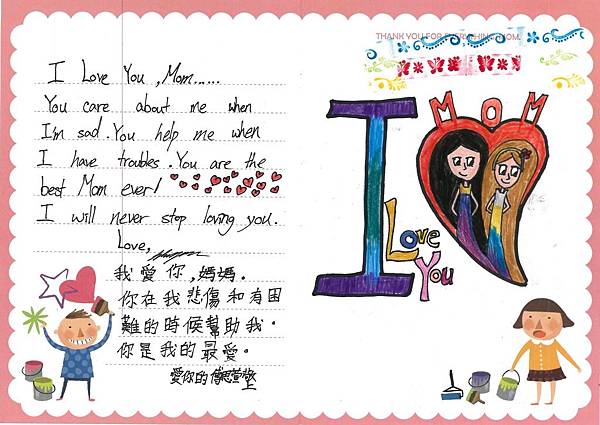 I Love You, Mom......
You care about me when
I'm sad. You help me when
I have troubles. You are the
best Mom ever!
I will never stop loving you.
Love,
我愛你,媽媽。
你在我悲傷和有困
難的時候幫助我。
你是我的最愛。
愛你的
上
THANK YOU FOR EVERYTHING MOM.
MOM
I
Love
You